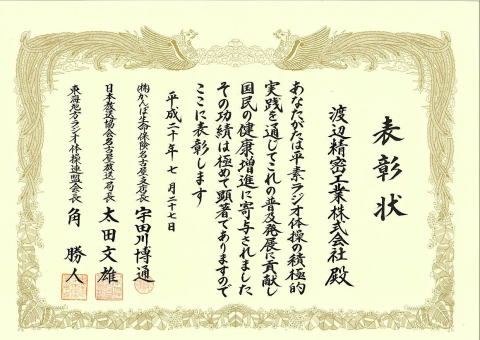 表彰状
渡辺精密工業株式会社 殿
あなたがたは平素ラジオ体操の積極的
実践を通じてこれの普及発展に貢献し
国民の健康増進に寄与されました
その功績は極めて顕著でありますので
ここに表彰します
平成二十年 七月二十七日
㈱かんぽ生命保険名古屋支店長 宇田川博通
日本放送協会名古屋放送局長 太田文雄
東海地方ラジオ体操連盟会長 角 勝人